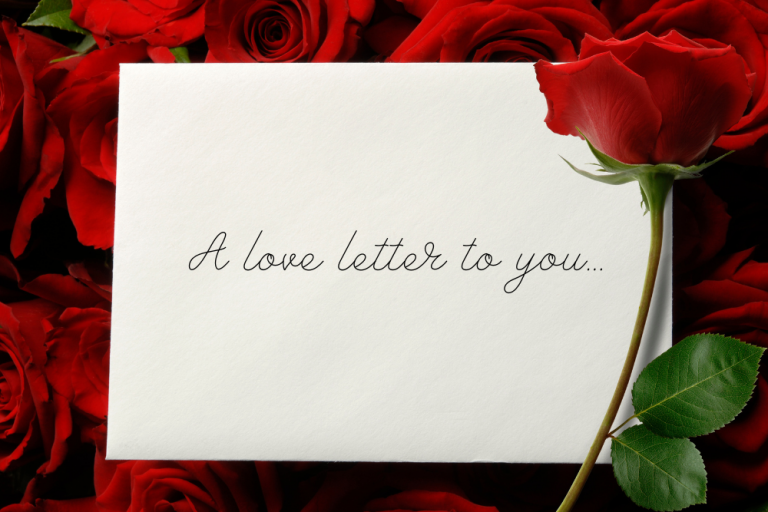 A love letter to you...